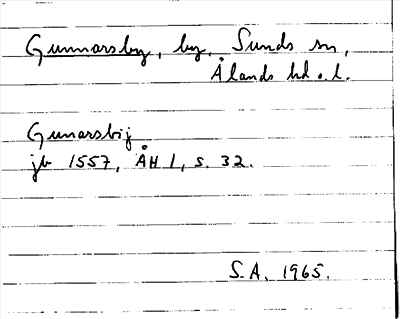 Gunnarsby, by, Sunds sn,
Ålands hd o. l.
Gunarsbij
jb 1557, ÅH 1, s. 32.
S.A. 1965.